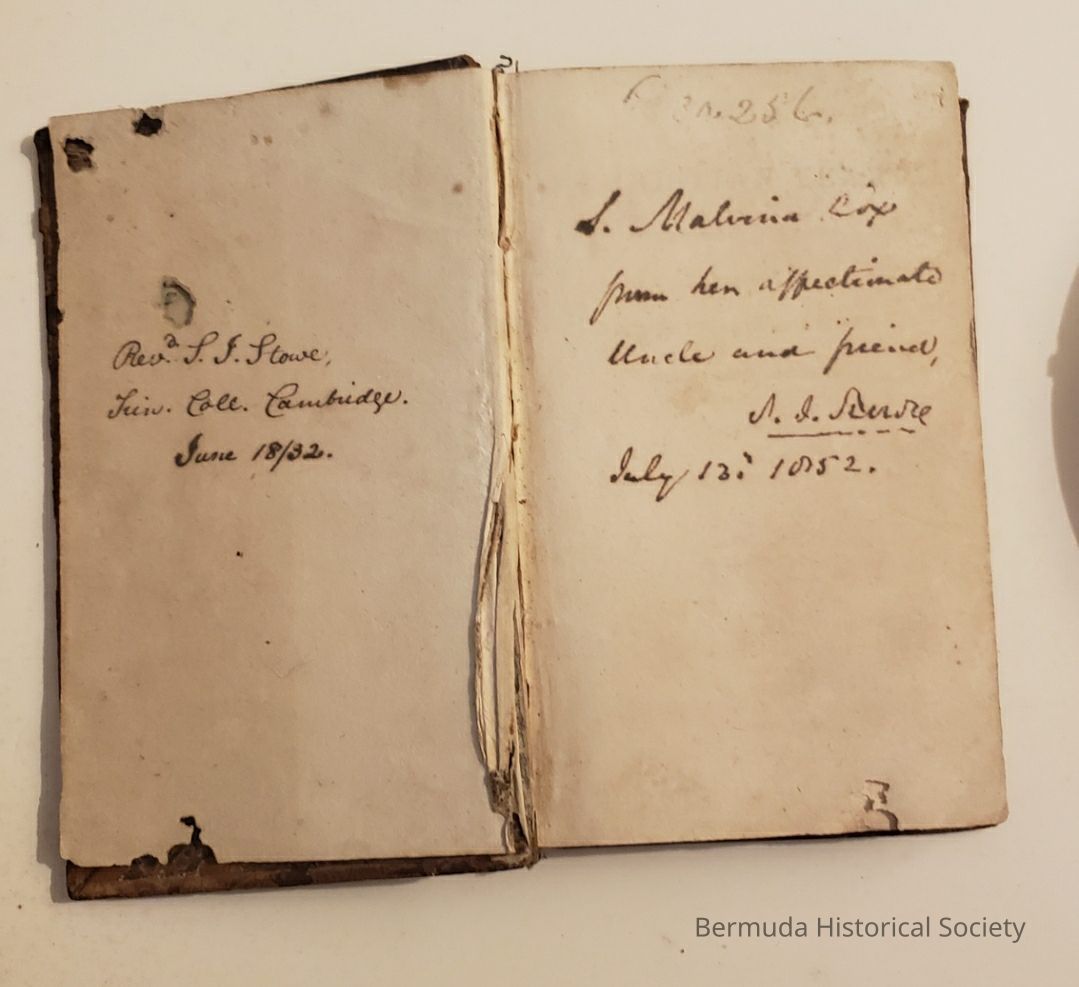 Revd. S. J. Stowe,
Trin. Coll. Cambridge.
June 18/32.
256.
S. Malvina Cox
from her affectionate
Uncle and friend,
July 13: 1852.
Bermuda Historical Society